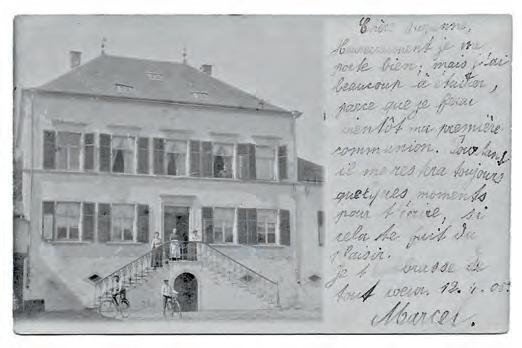 Chère Suzanne,
Heureusement je me
porte bien; mais j'ai
beaucoup à étudier,
parce que je ferai
bientôt ma première
communion. Pourtant
il me restra toujours
quelques moments
pour t'écrire, si
cela te fait du
plaisir.
Je t'embrasse de
tout coeur. 12.4.05.
Marcel.